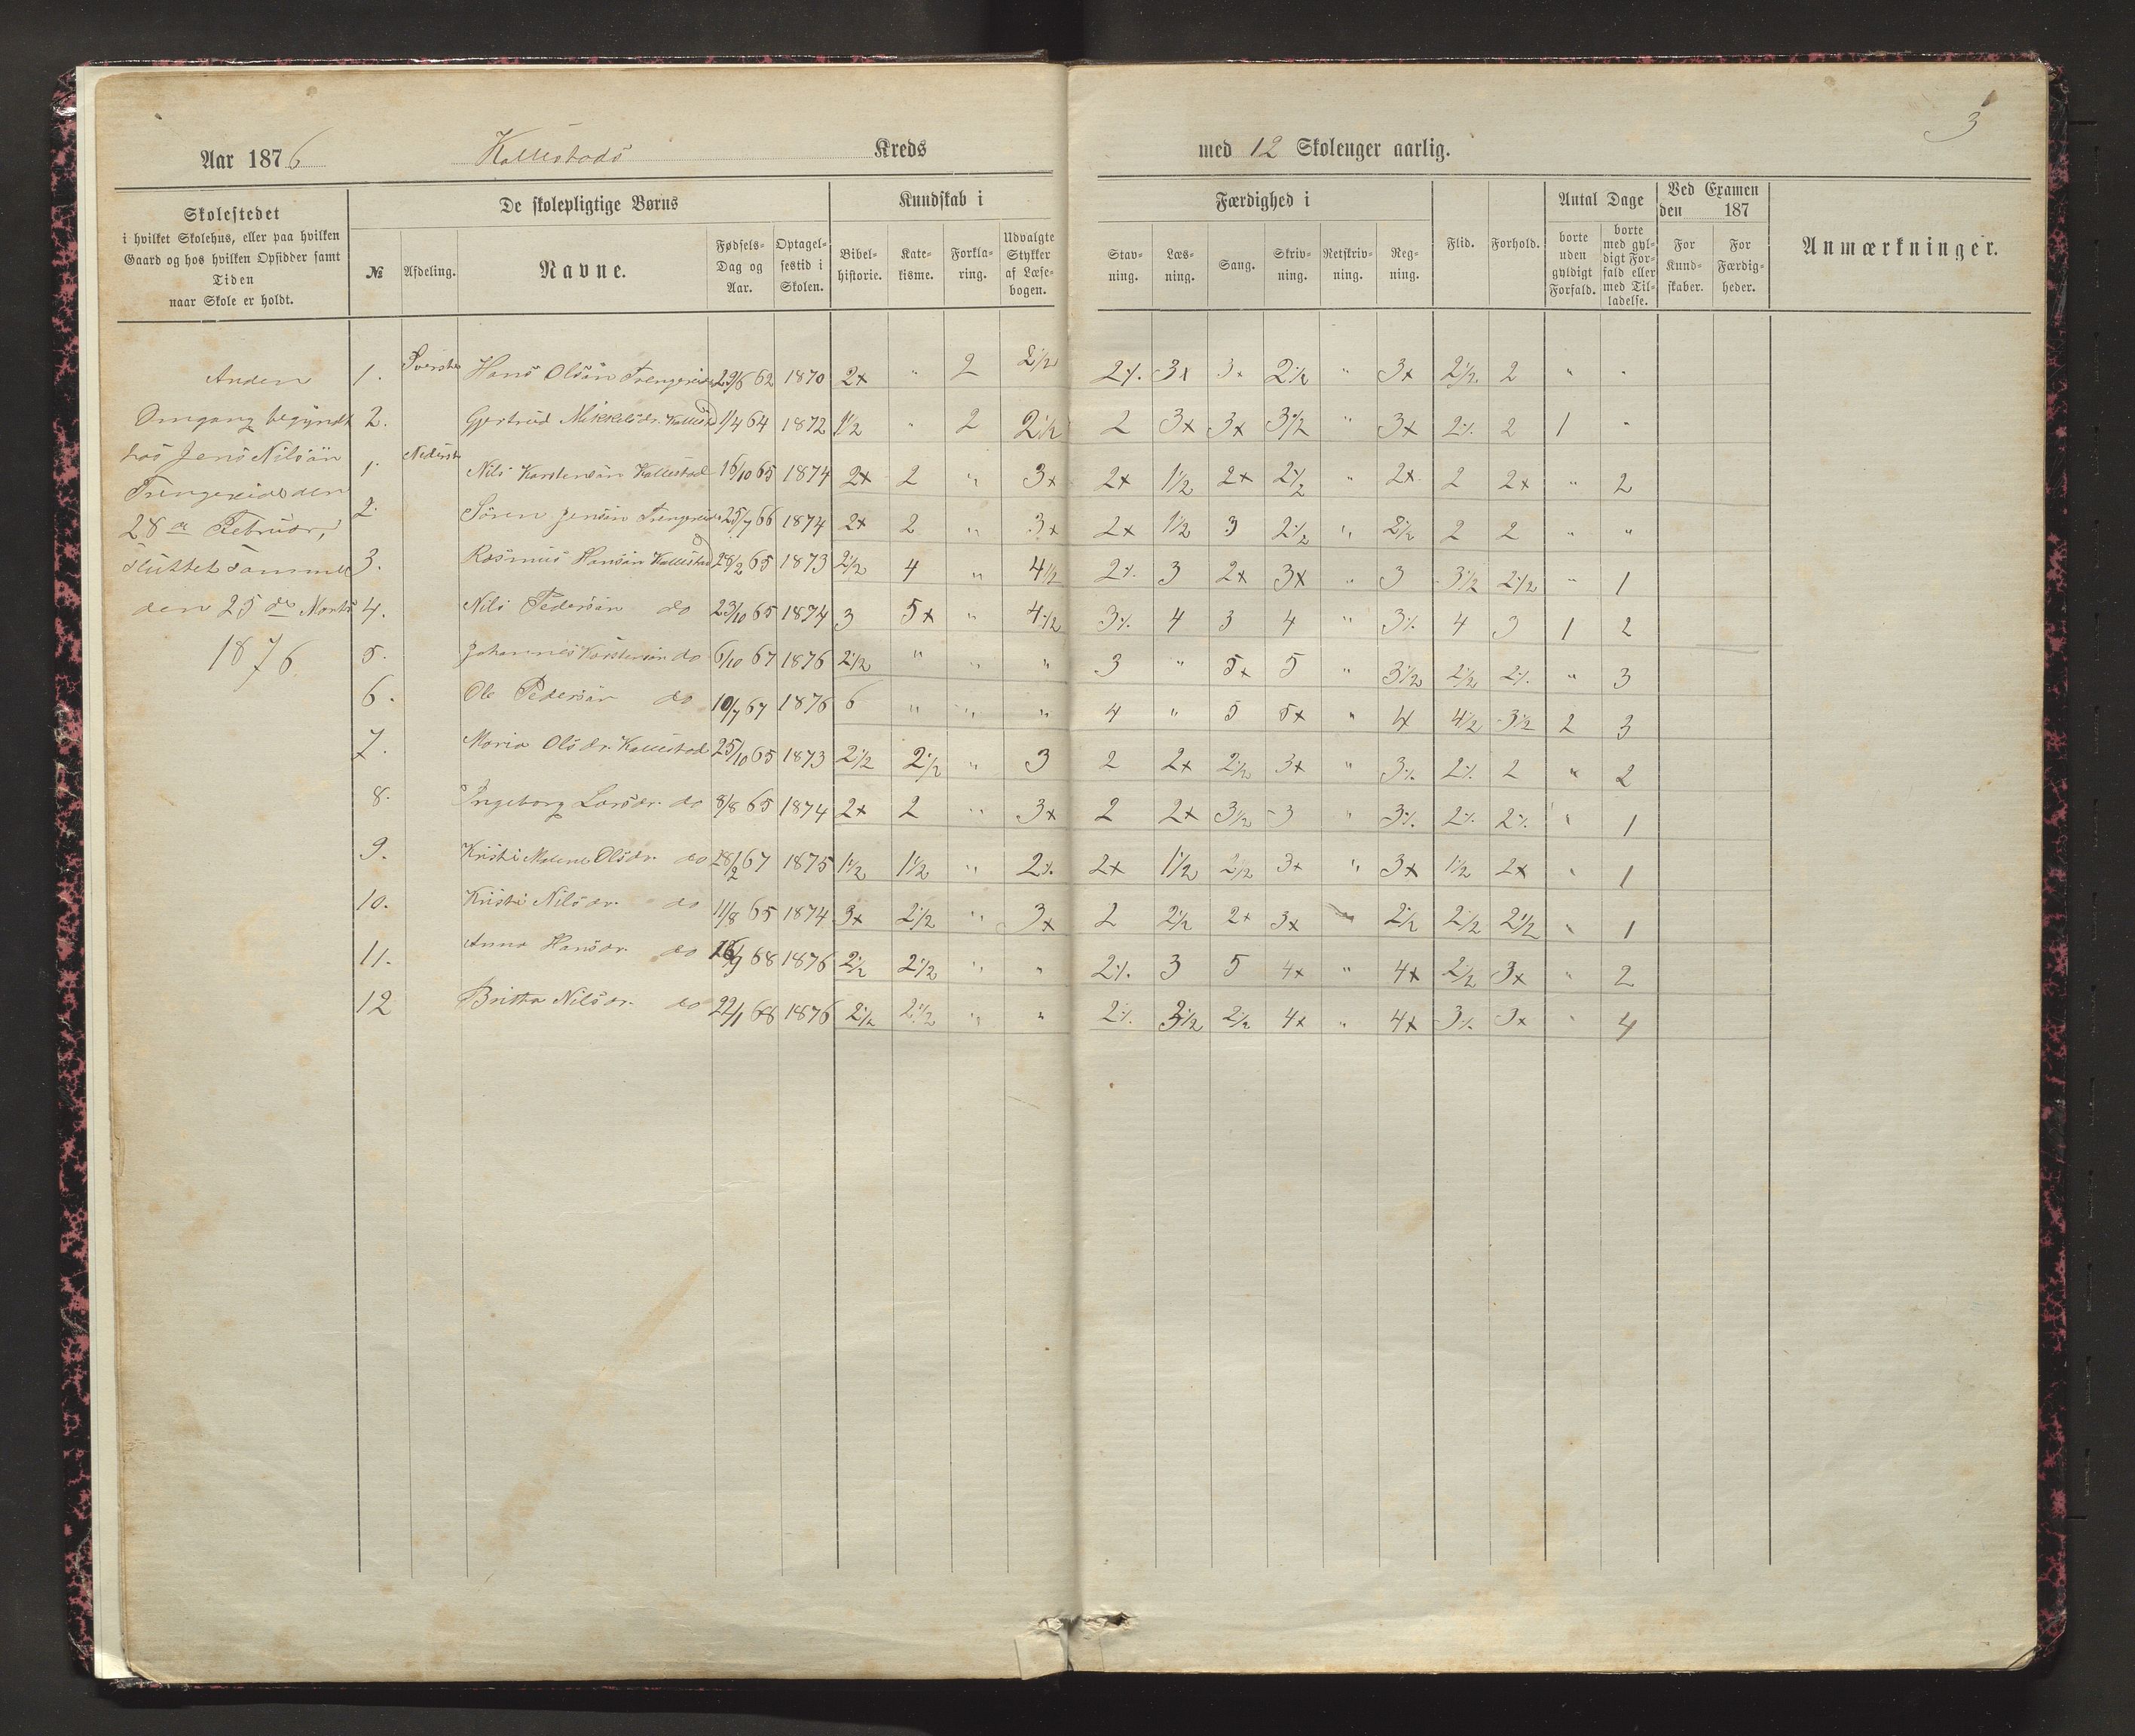 3
Aar 1876 Kallestads Kreds med 12 Skoleuger aarlig.
Skolestedet
i hvilket Skolehus, eller paa hvilken
Gaard og hos hvilken Opsidder samt
Tiden
naar Skole er holdt.
De skolepligtige Børns
№
Afdeling.
Navne.
Fødsels-
Dag og
Aar.
Optagel-
sestid i
Skolen.
Kundskab i
Bibel-
historie.
Kate-
kisme.
Forkla-
ring.
Udvalgte
Stykker
af Læse-
bogen.
Færdighed i
Stav-
ning.
Læs-
ning.
Sang.
Skriv-
ning.
Retskriv-
ning.
Reg-
ning.
Flid.
Forhold.
Antal Dage
borte
uden
gyldigt
Forfald.
borte
med gyl-
digt For-
fald eller
med Til-
ladelse.
Ved Examen
den 187
For
Kund-
skaber.
For
Færdig-
heder.
Anmærkninger.
Anden
Omgang begyndt
hos Jens Nilsän
Trengereide den
28de Februar,
sluttet samme
den 25de Marts
1876.
1. Øverste Hans Olsän Trengereide 29/6 62 1870 2x " 2 2½ 2⁒ 3x 3x 2½ " 3x 2½ 2 " "
2. Gjertrud Mikkelsdr. Kallestad 1/4 64 1872 1½ " 2 2½ 2 3x 3x 3½ " 3x 2⁒ 2 1 "
1. Nederste Nils Karstensän Kallestad 16/10 65 1874 2x 2 " 3x 2x 1½ 2x 2½ " 2x 2 2x " 2
2. Sören Jensän Trengereide 25/7 66 1874 2x 2 " 3x 2x 1½ 3 2½ " 2½ 2 2 " "
3. Rasmus Hansän Kallestad 28/2 65 1873 2½ 4 " 4½ 2⁒ 3 2x 3x " 3 3½ 2½ " 1
4. Nils Pedersän do 23/10 65 1874 3 5x " 4½ 3⁒ 4 3 4 " 3⁒ 4 3 1 2
5. Johannes Karstensän do 6/10 67 1876 2½ " " " 3 " 5x 5 " 3½ 2½ 2⁒ " 3
6. Ole Pedersän do 10/7 67 1876 6 " " " 4 " 5 5x " 4 4½ 3½ 2 3
7. Maria Olsdr. Kallestad 25/10 65 1873 2½ 2½ " 3 2 2x 2½ 3x " 3⁒ 2⁒ 2 " 2
8. Ingeborg Larsdr. do 8/8 65 1874 2x 2 " 3x 2 2x 3½ 3 " 3⁒ 2⁒ 2⁒ " 1
9. Kristi Malene Olsdr. do 28/2 67 1875 1½ 1½ " 2⁒ 2x 1½ 2½ 3x " 3x 1½ 2x " 1
10. Kristi Nilsdr. do 11/8 65 1874 3x 2½ " 3x 2 2½ 2x 3x " 2½ 2½ 2½ " 1
11. Anna Hansdr. do 68 1876 2½ 2½ " " 2⁒ 3 5 4x " 4x 2½ 3x " 2
12 Britta Nilsdr. do 22/1 68 1876 2½ 2½ " " 2⁒ 3½ 2½ 4x " 4x 3⁒ 3x " 4